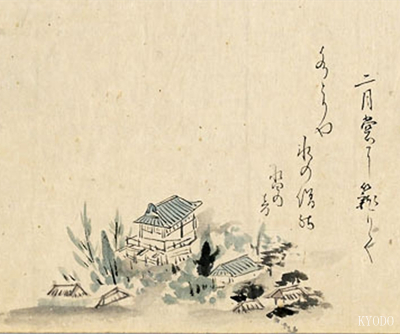 二月堂に籠りて
水とりや
氷の僧の
沓の
音
KYODO